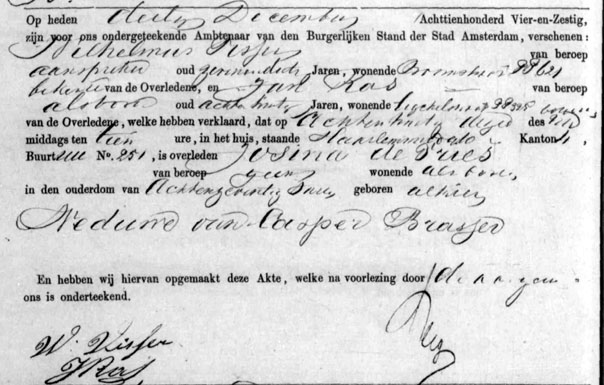 Op heden dertig December Achttienhonderd Vier-en-Zestig,
zijn voor ons ondergeteekende Ambtenaar van den Burgerlijken Stand der Stad Amsterdam, verschenen:
Wilhelmus Visser van beroep
aanspreker oud Jaren, wonende
bekende van de Overledene, en Jan Ras van beroep
als boven oud achtendertig Jaren, wonende
van de Overledene, welke hebben verklaard, dat op Achtentwintig dezer des
middags ten tien ure, in het huis, staande Kanton
Buurt No. 251, is overleden Josina de Vries
van beroep geen wonende als boven,
in den ouderdom van Jaren, geboren alhier
Weduwe van Casper Brasser
En hebben wij hiervan opgemaakt deze Akte, welke na voorlezing door
ons is onderteekend.
W. Visser
J Ras